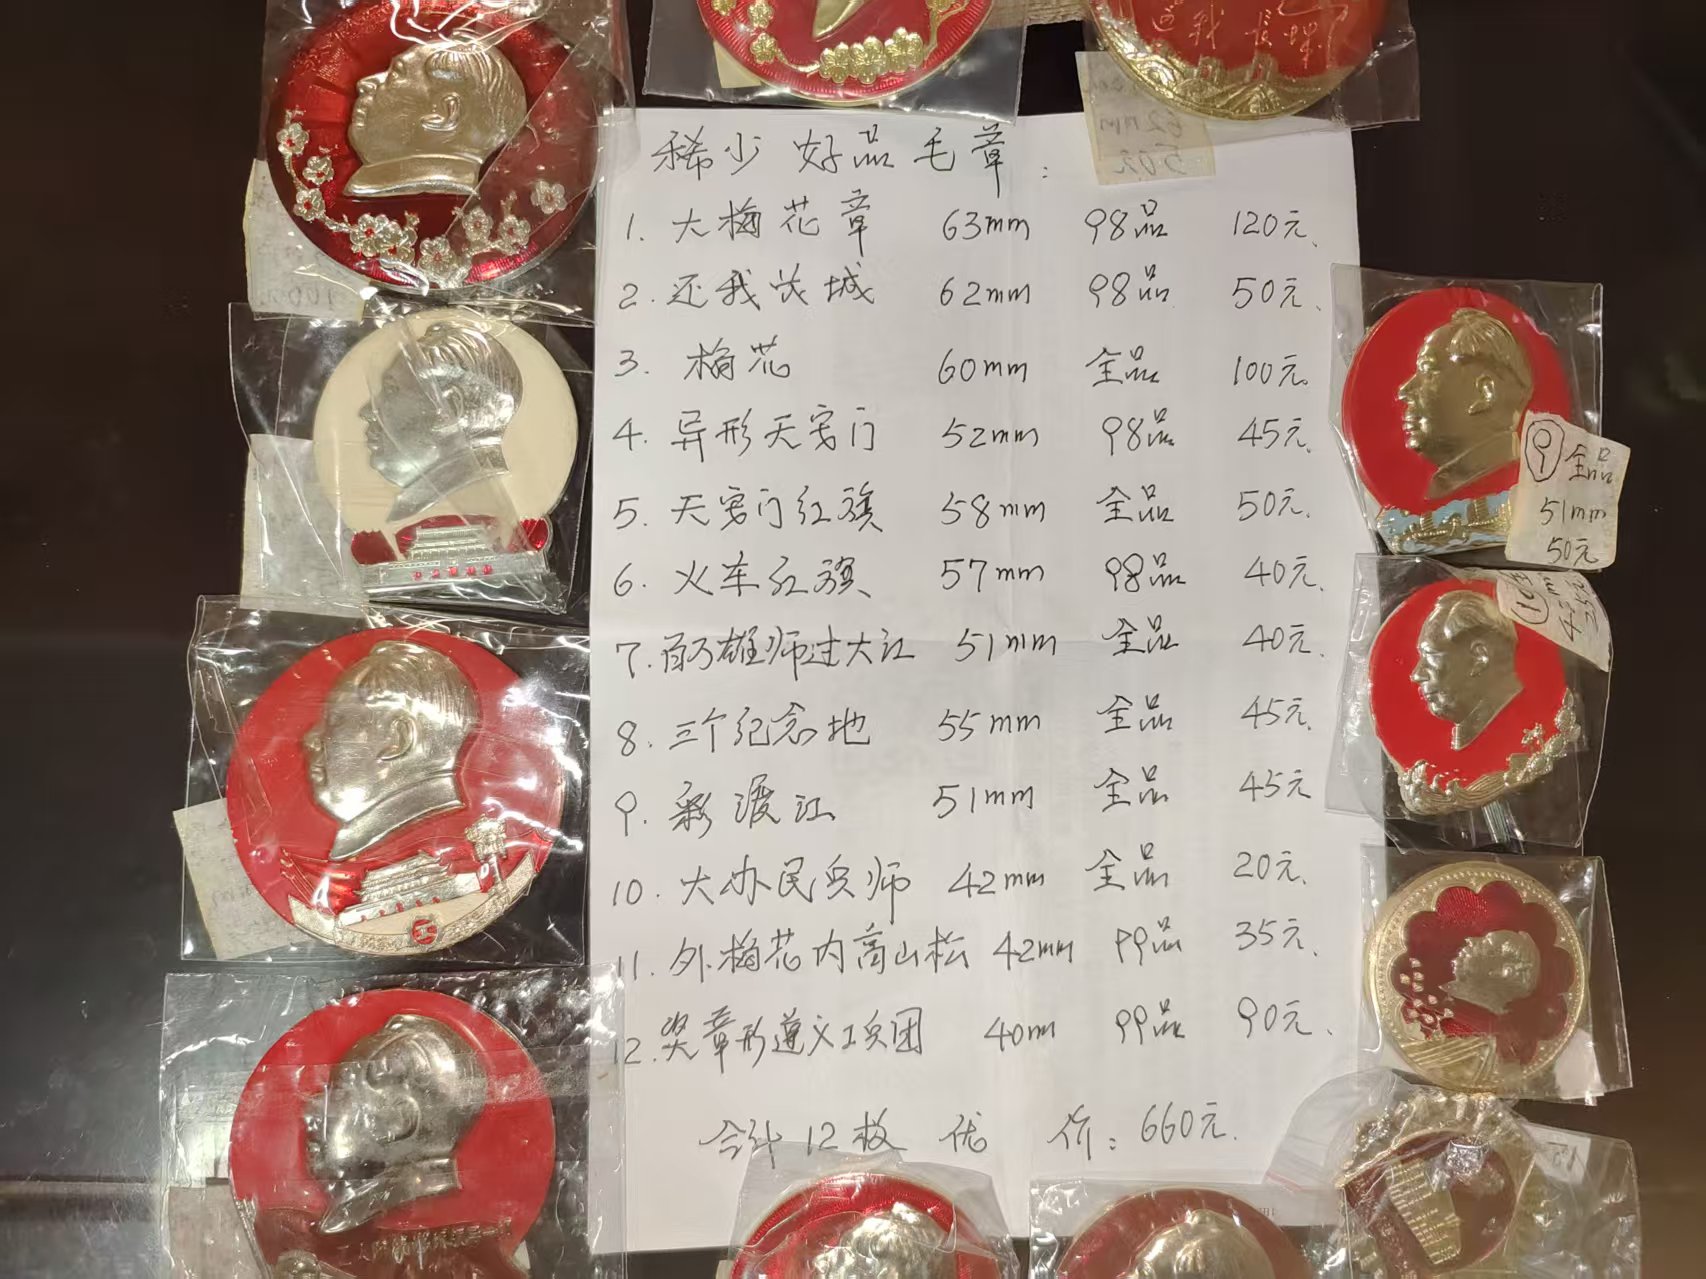 稀少 好品 毛章:
1. 大梅花章 63mm 98品 120元.
2. 还我长城 62mm 98品 50元.
3. 梅花 60mm 全品 100元.
4. 异形天安门 52mm 98品 45元.
5. 天安门红旗 58mm 全品 50元.
6. 火车红旗 57mm 98品 40元.
7. 百万雄师过大江 51mm 全品 40元.
8. 三个纪念地 55mm 全品 45元.
9. 彩渡江 51mm 全品 45元
10. 大办民兵师 42mm 全品 20元.
11. 外梅花内高山松 42mm 99品 35元.
12. 奖章形遵义工兵团 40mm 99品 90元.
合计12枚 优 价: 660元.
⑨ 全品
51mm
50元
62mm
50元